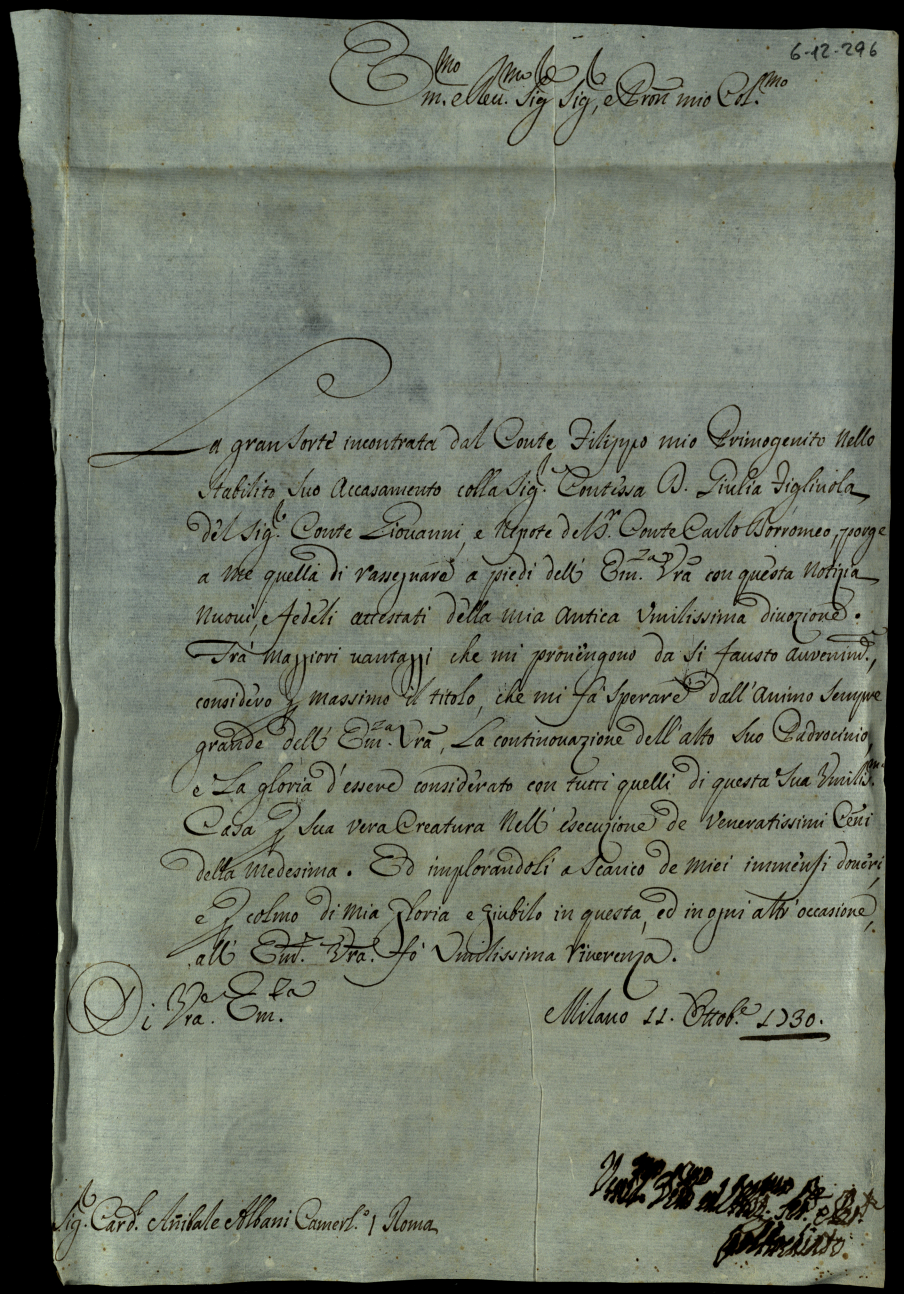 6-12-296
Em.mo e Reu.mo Sig.r Sig.r, e Pron mio Col.mo
La gran sorte incontrata dal Conte Filippo mio Primogenito nello
stabilito suo Accasamento colla Sig.r Contessa D. Giulia Figliuola
del Sig.r Conte Giouanni, e Nipote del S.r Conte Carlo Borromeo, porge
a me quella di rassegnare a piedi dell' Em.za Vra con questa notizia
nuoui, e fedeli attestati della mia antica Vmilissima diuozione.
Trà maggiori uantaggi che mi prouengono da si fausto auuenim.to,
considero p massimo il titolo, che mi fà sperare dall'Animo sempre
grande dell' Em.za Vrà, La continouazione dell'alto suo Padrocinio,
e La gloria d'essere considerato con tutti quelli di questa sua Vmiliss.ma
Casa p sua vera Creatura nell' esecuzione de Veneratissimi Ceñi
della medesima. Ed implorandoli a scarico de miei immensi doueri,
e p colmo di mia gloria e giubilo in questa, ed in ogni altr'occasione,
all' Em.za Vra. fò Vmilissima riuerenza.
Di Vra. Em.za
Milano 11. Ottob.e 1730.
Sig.r Card.l Añibale Albani Camerl.o / Roma